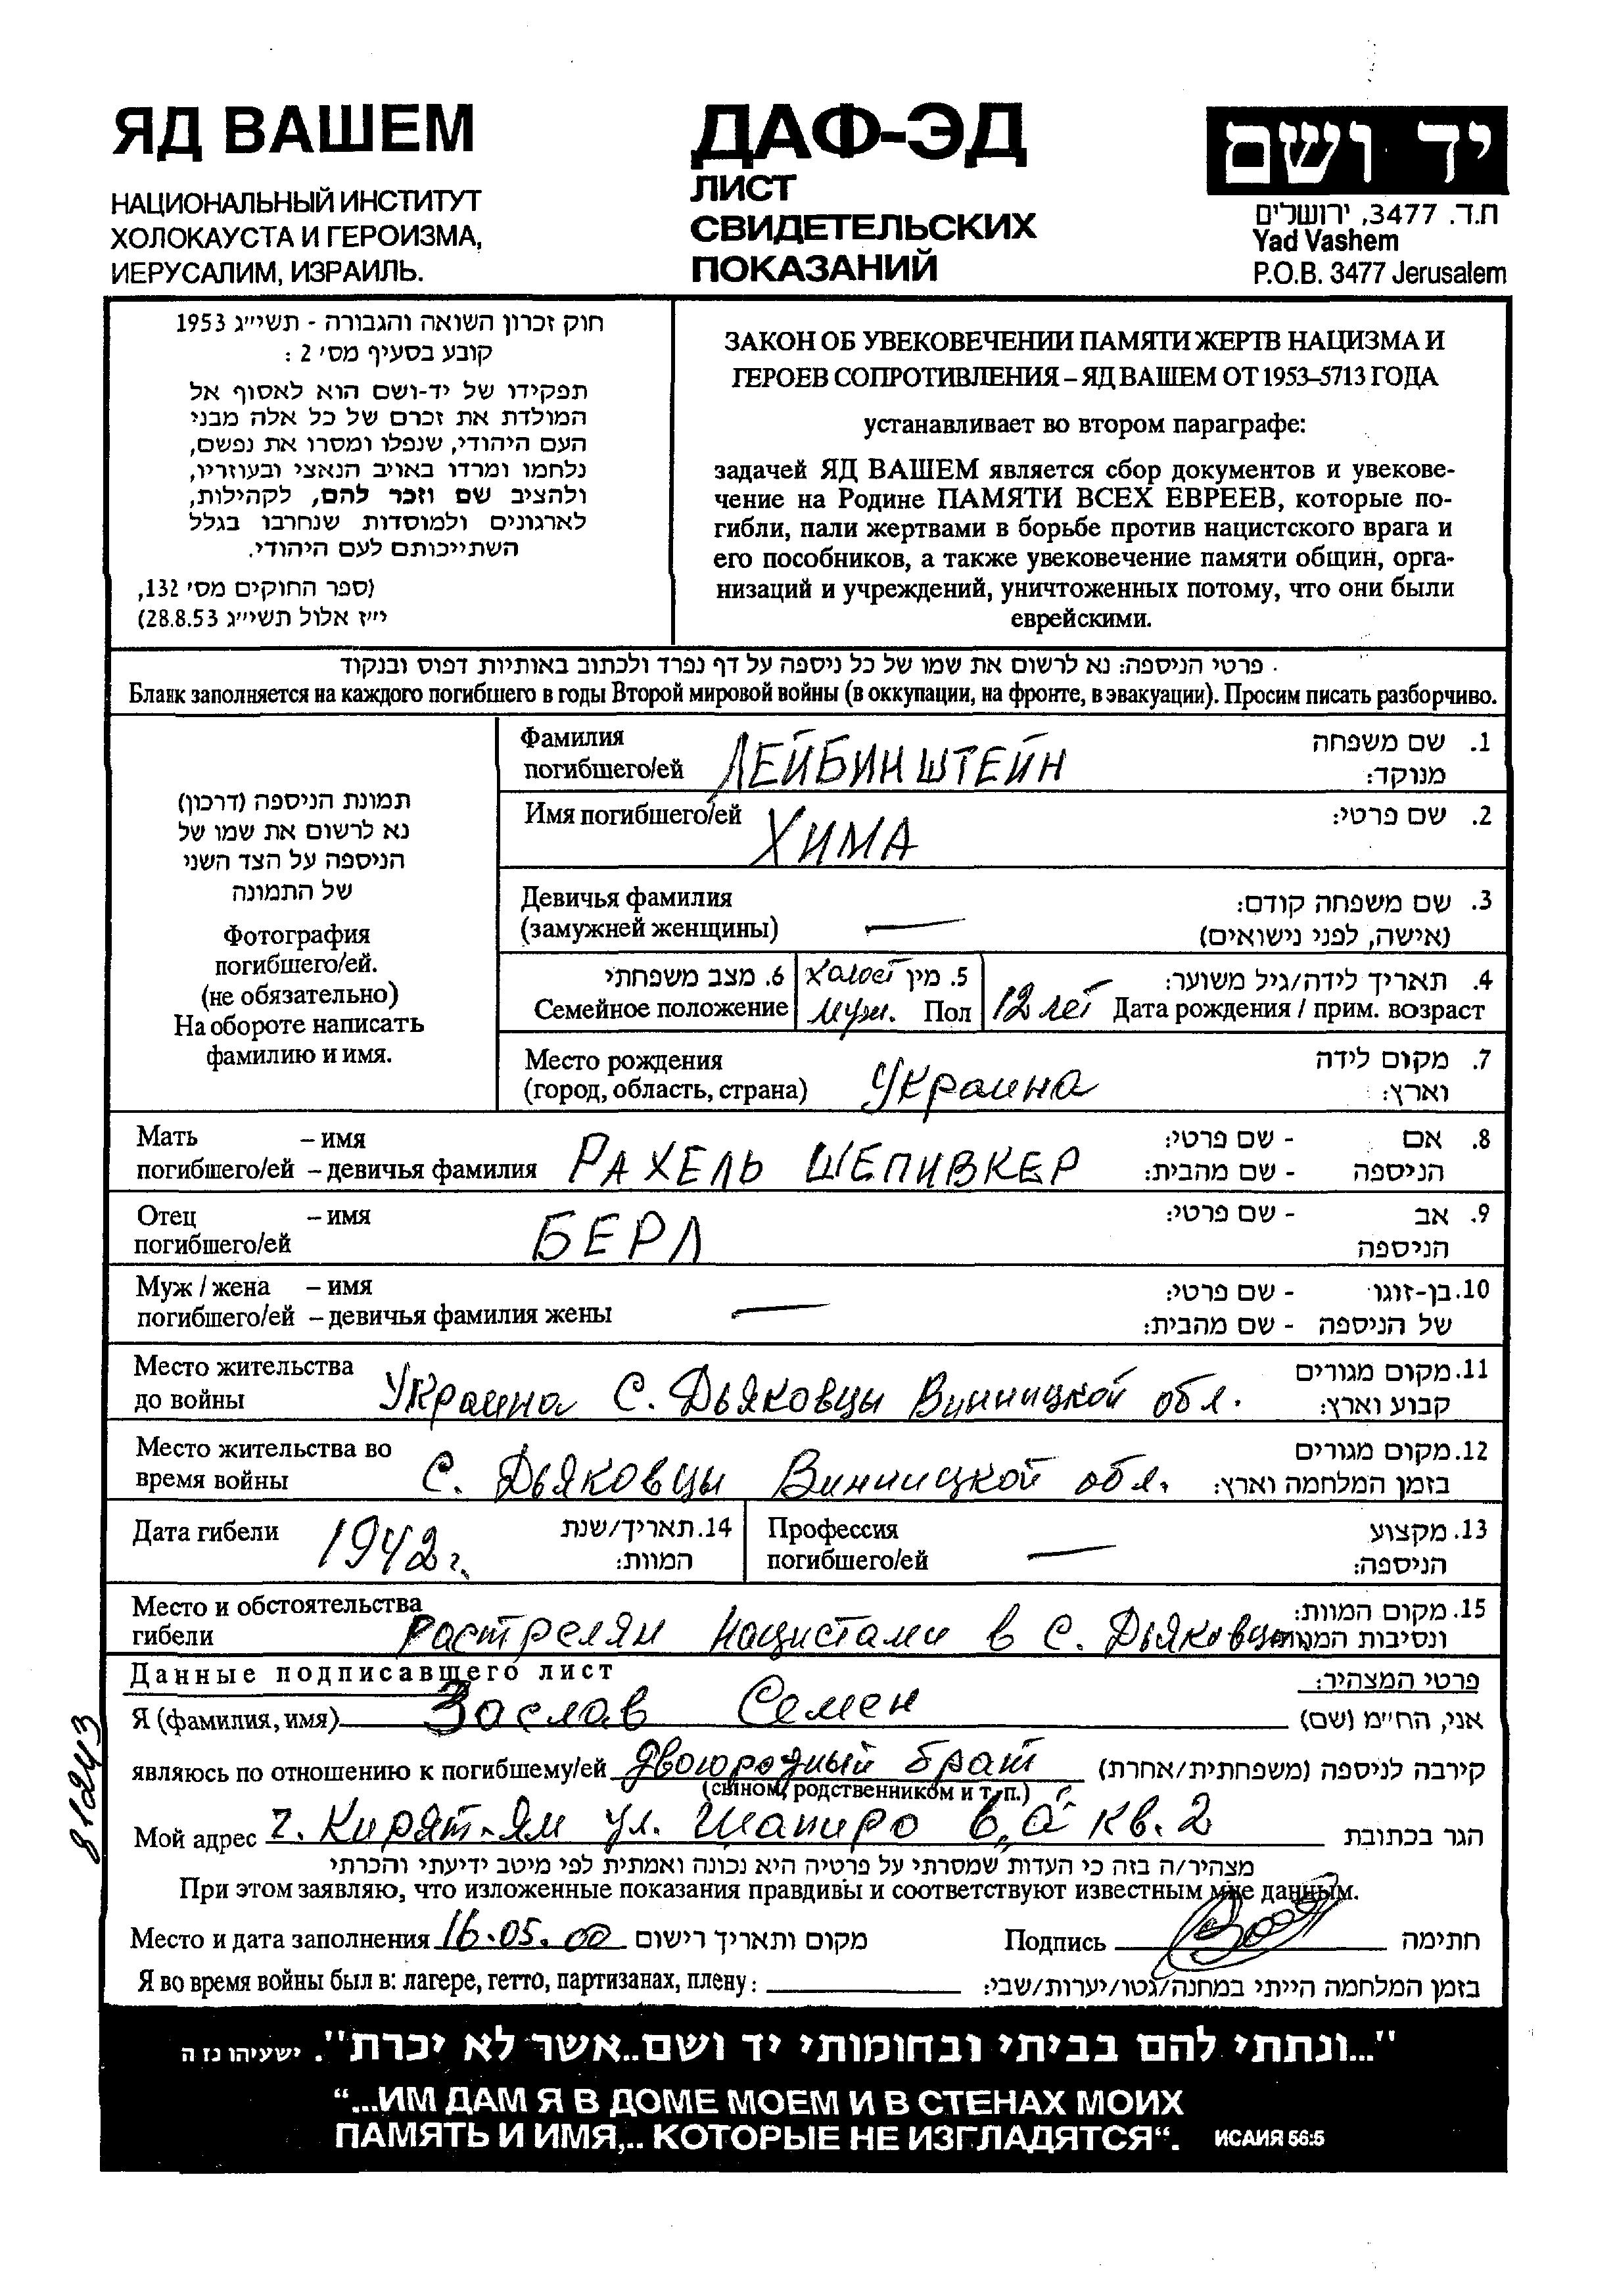 ЯД ВАШЕМ
НАЦИОНАЛЬНЫЙ ИНСТИТУТ
ХОЛОКАУСТА И ГЕРОИЗМА,
ИЕРУСАЛИМ, ИЗРАИЛЬ.
ДАФ-ЭД
ЛИСТ
СВИДЕТЕЛЬСКИХ
ПОКАЗАНИЙ
יד ושם
ת.ד. 3477, ירושלים
Yad Vashem
P.O.B. 3477 Jerusalem
חוק זכרון השואה והגבורה - תשי״ג 1953
קובע בסעיף מס׳ 2 :
תפקידו של יד-ושם הוא לאסוף אל
המולדת את זכרם של כל אלה מבני
העם היהודי, שנפלו ומסרו את נפשם,
נלחמו ומרדו באויב הנאצי ובעוזריו,
ולהציב שם וזכר להם, לקהילות,
לארגונים ולמוסדות שנחרבו בגלל
השתייכותם לעם היהודי.
(ספר החוקים מס׳ 132,
י״ז אלול תשי״ג 28.8.53)
ЗАКОН ОБ УВЕКОВЕЧЕНИИ ПАМЯТИ ЖЕРТВ НАЦИЗМА И
ГЕРОЕВ СОПРОТИВЛЕНИЯ – ЯД ВАШЕМ ОТ 1953–5713 ГОДА
устанавливает во втором параграфе:
задачей ЯД ВАШЕМ является сбор документов и увекове-
чение на Родине ПАМЯТИ ВСЕХ ЕВРЕЕВ, которые по-
гибли, пали жертвами в борьбе против нацистского врага и
его пособников, а также увековечение памяти общин, орга-
низаций и учреждений, уничтоженных потому, что они были
еврейскими.
פרטי הניספה: נא לרשום את שמו של כל ניספה על דף נפרד ולכתוב באותיות דפוס ובנקוד
Бланк заполняется на каждого погибшего в годы Второй мировой войны (в оккупации, на фронте, в эвакуации). Просим писать разборчиво.
תמונת הניספה (דרכון)
נא לרשום את שמו של
הניספה על הצד השני
של התמונה
Фотография
погибшего/ей.
(не обязательно)
На обороте написать
фамилию и имя.
Фамилия 1. שם משפחה
погибшего/ей ЛЕЙБИНШТЕЙН מנוקד:
Имя погибшего/ей ХИМА 2. שם פרטי:
Девичья фамилия 3. שם משפחה קודם:
(замужней женщины) — (אישה, לפני נישואים)
6. מצב משפחתי холост 5. מין 4. תאריך לידה/גיל משוער:
Семейное положение муж. Пол 12 лет Дата рождения / прим. возраст
Место рождения 7. מקום לידה
(город, область, страна) Украина וארץ:
Мать – имя - שם פרטי: 8. אם
погибшего/ей – девичья фамилия РАХЕЛЬ ШЕПИВКЕР - שם מהבית: הניספה
Отец – имя - שם פרטי: 9. אב
погибшего/ей БЕРЛ הניספה
Муж / жена – имя - שם פרטי: 10. בן-זוגו
погибшего/ей – девичья фамилия жены — - שם מהבית: של הניספה
Место жительства 11. מקום מגורים
до войны Украина С. Дьяковцы Винницкой обл. קבוע וארץ:
Место жительства во 12. מקום מגורים
время войны С. Дьяковцы Винницкой обл. בזמן המלחמה וארץ:
Дата гибели 1942 г. 14. תאריך/שנת
המוות:
Профессия 13. מקצוע
погибшего/ей — הניספה:
Место и обстоятельства 15. מקום המוות:
гибели растрелян нацистами в С. Дьяковцы ונסיבות המוות
Данные подписавщего лист פרטי המצהיר:
Я (фамилия, имя) Заслав Семен אני, הח״מ (שם)
являюсь по отношению к погибшему/ей двоюродный брат קירבה לניספה (משפחתית/אחרת)
(сыном, родственником и т.п.)
Мой адрес г. Кирят-Ям ул. Шапиро 6„а" кв. 2 הגר בכתובת
מצהיר/ה בזה כי העדות שמסרתי על פרטיה היא נכונה ואמתית לפי מיטב ידיעתי והכרתי
При этом заявляю, что изложенные показания правдивы и соответствуют известным мне данным.
Место и дата заполнения 16.05.00 מקום ותאריך רישום Подпись חתימה
Я во время войны был в: лагере, гетто, партизанах, плену: בזמן המלחמה הייתי במחנה/גטו/יערות/שבי:
81243
"...ונתתי להם בביתי ובחומותי יד ושם..אשר לא יכרת". ישעיהו נז ה
“...ИМ ДАМ Я В ДОМЕ МОЕМ И В СТЕНАХ МОИХ
ПАМЯТЬ И ИМЯ,.. КОТОРЫЕ НЕ ИЗГЛАДЯТСЯ“. ИСАИЯ 56:5